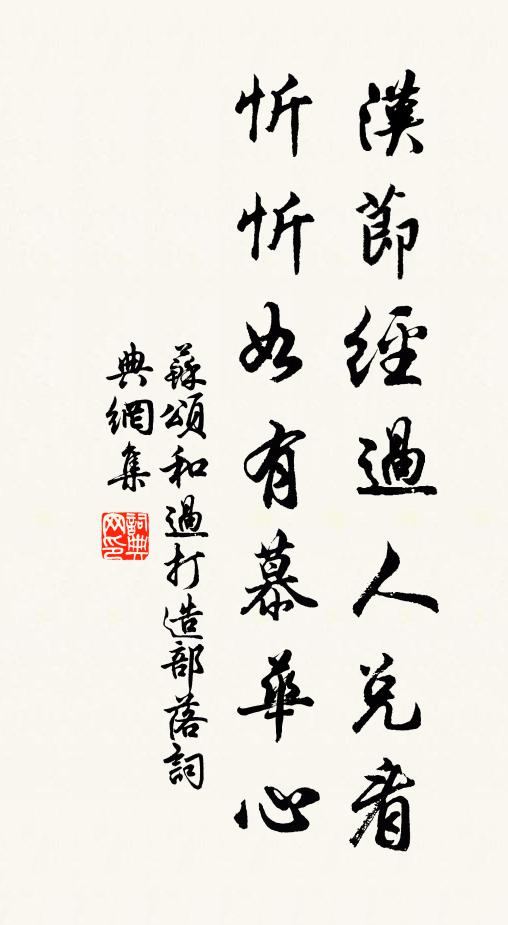 漢節經過人兊看
忻忻如有慕華心
蘇頌和過打造部落詞
典網集
詞典
网印